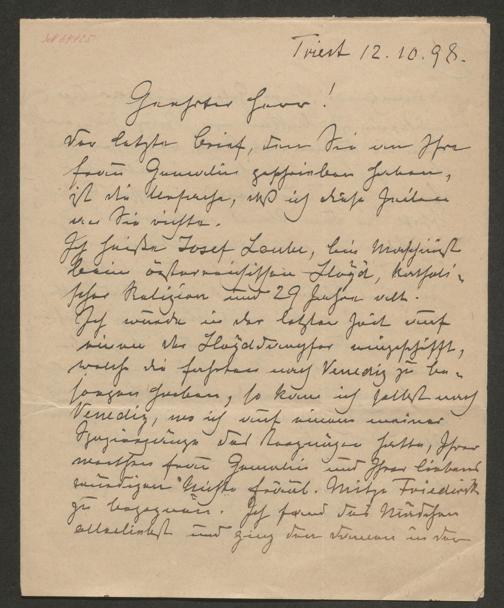 Triest 12.10.98.
Geehrter Herr!
Der letzte Brief, den Sie an Ihre
Frau Gemalin geschrieben haben,
ist die Ursache, daß ich diese Zeilen
an Sie richte.
Ich heiße Josef Laube, bin Maschinist
beim österreichischen Lloyd, katholi-
scher Religion und 29 Jahre alt.
Ich wurde in der letzten Zeit auf
einen der Lloyddampfer eingeschifft,
welche die Fahrten nach Venedig zu be-
sorgen haben, so kam ich selbst nach
Venedig, wo ich auf einem meiner
Spaziergänge das Vergnügen hatte, Ihrer
werthen Frau Gemalin und Ihrer liebens
würdigen Nichte Fräul. Mitze Friedrich
zu begegnen. Ich fand das Mädchen
allerliebst und ging den Damen in der